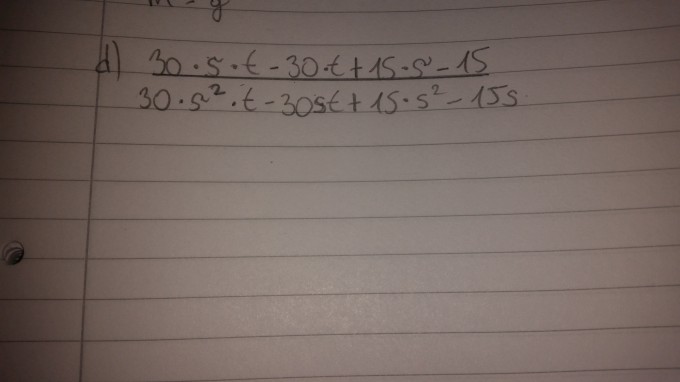 d) 30 · s · t - 30 · t + 15 · s - 15
30 · s² · t - 30st + 15 · s² - 15s